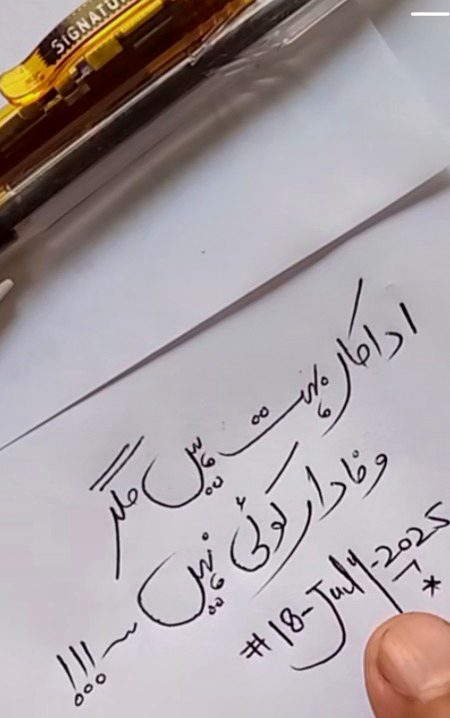 SIGNATUR
اداکار بہت ہیں مگر
وفادار کوئی نہیں ~ !!!
#18-July-2025
*